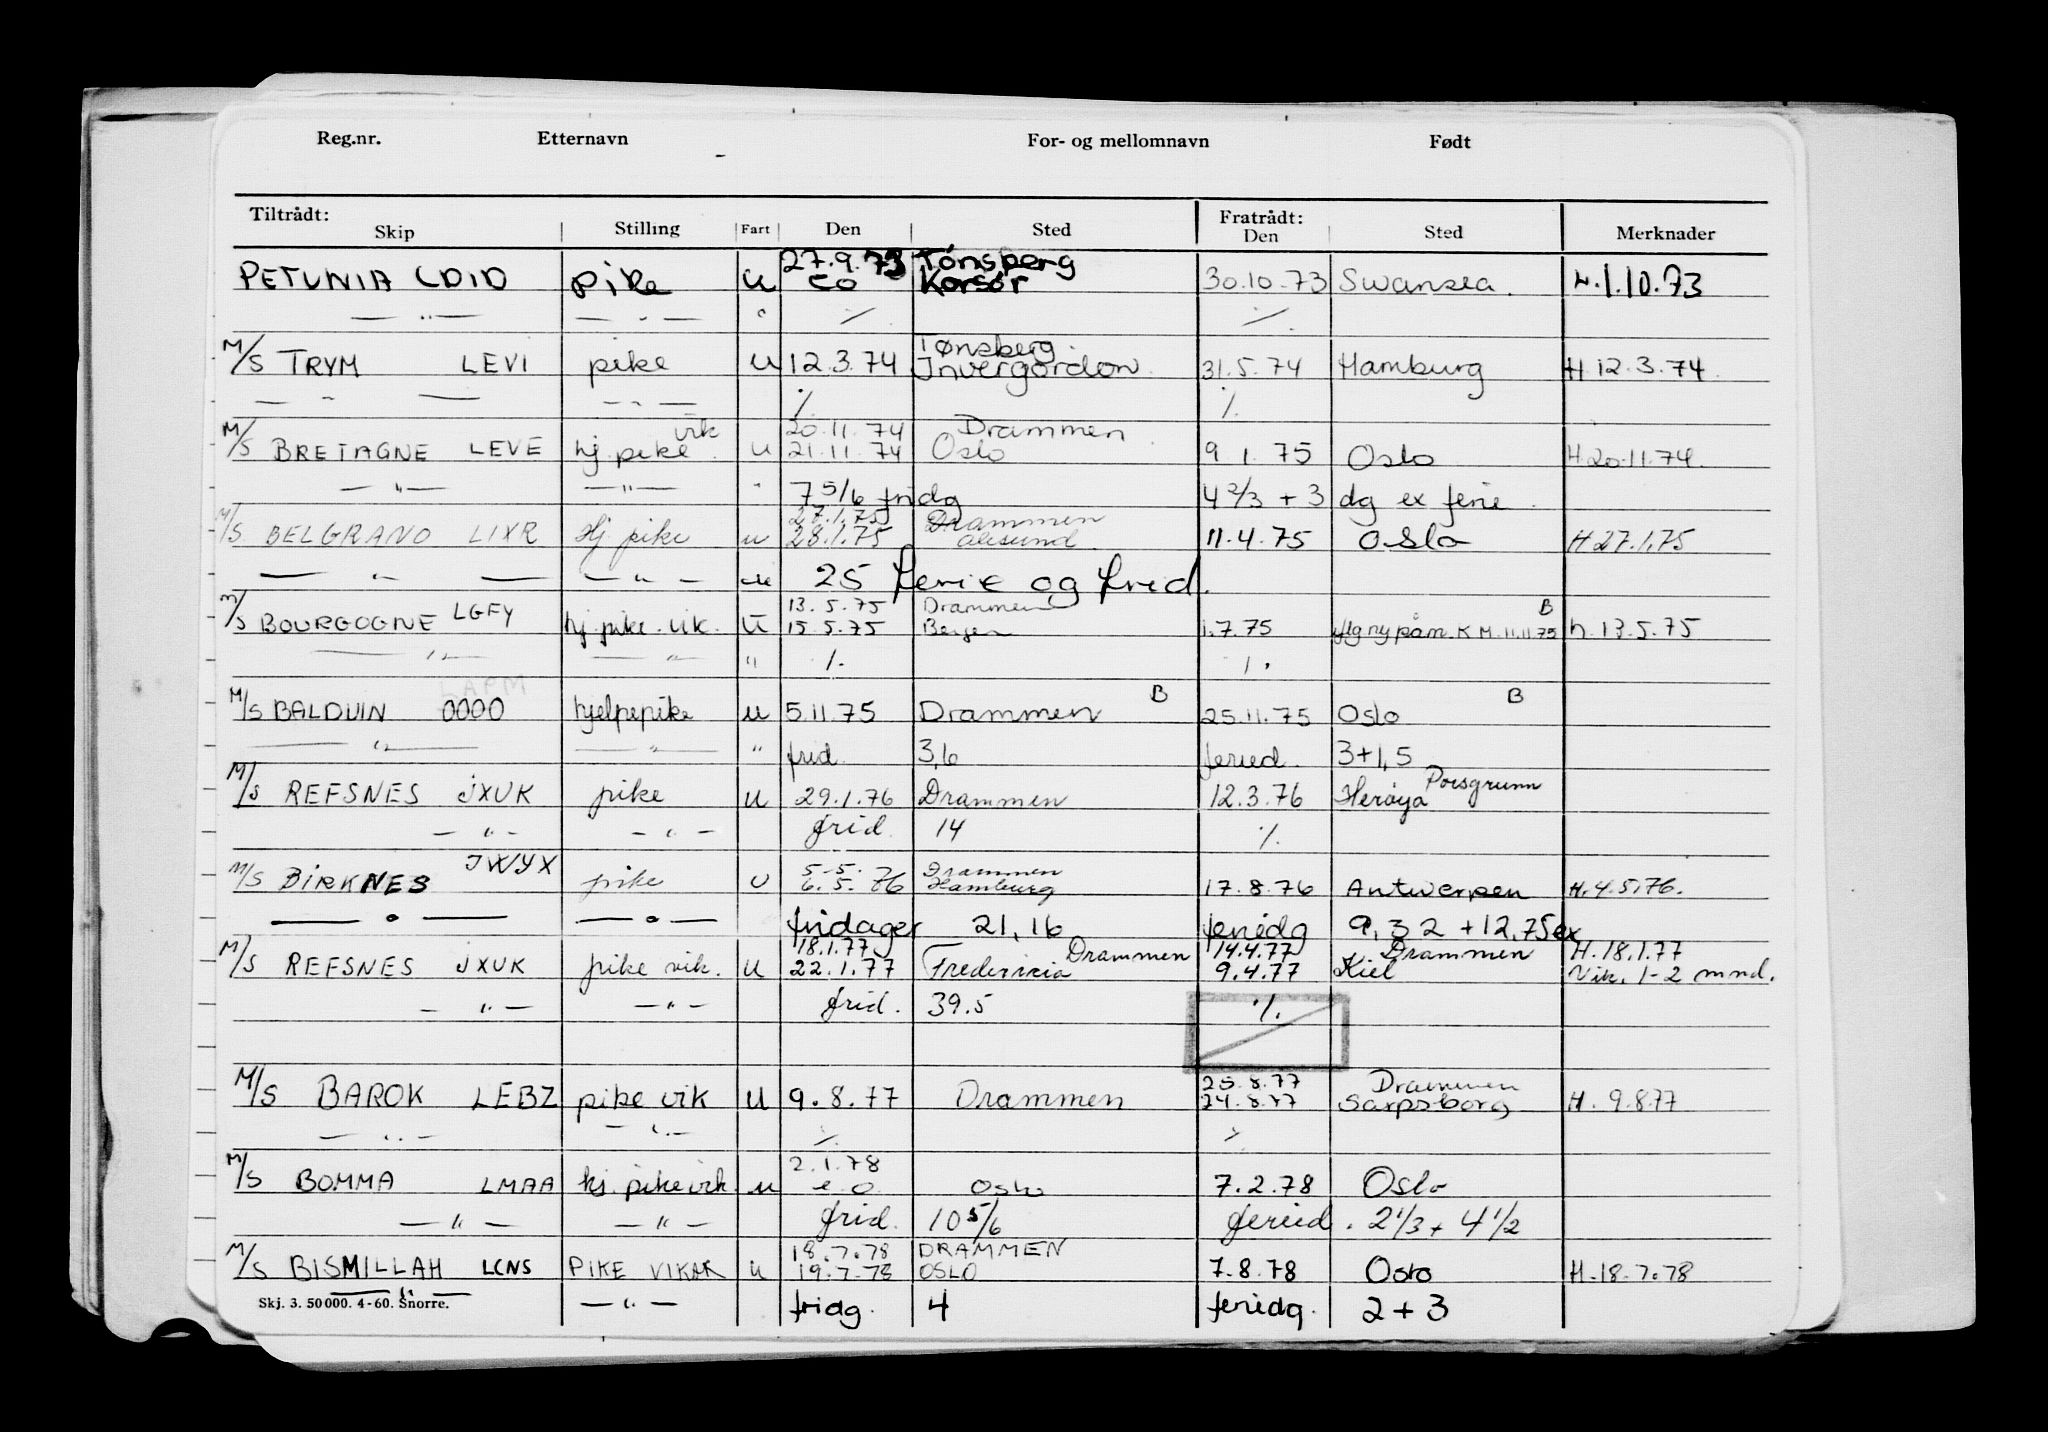 Reg.nr. Etternavn For- og mellomnavn Født
Tiltrådt: Fratrådt:
Skip Stilling Fart Den Sted Den Sted Merknader
27.9.73 Tønsberg
PETUNIA LDID pike u EO Korsør 30.10.73 Swansea. H.1.10.73
— " — — " — " ٪ ٪
Tønsberg
M/S TRYM LEVI pike u 12.3.74 Invergordon 31.5.74 Hamburg H 12.3.74
— " — — " — ٪ ٪
vik 20.11.74 Drammen
M/S BRETAGNE LEVE hj.pike u 21.11.74 Oslo 9 1.75 Oslo H 20.11.74.
— " — — " — " 7 5/6 fridg 4 2/3 + 3 dg ex ferie
27.1.75 Drammen
M/S BELGRANO LIXR Hj. pike u 28.1.75 Ålesund 11.4.75 Oslo H 27.1.75
— " — — " — u 25 ferie og frid.
13.5.75 Drammen B
M/S BOURGOGNE LGFY hj.pike.vik. u 15.5.75 Bergen 1.7.75 flg ny påm. K M.11.11.75 h. 13.5.75
— " — — " — " ٪ ٪
LAPM B B
M/S BALDUIN 0000 hjelpepike u 5.11.75 Drammen 25.11.75 Oslo
— " — — " — " frid. 3,6 feried. 3+1,5
Porsgrunn
M/S REFSNES JXUK pike u 29.1.76 Drammen 12.3.76 Herøya
— " — — " — frid. 14 ٪
JWYX 5.5. Drammen
M/S BIRKNES pike u 6.5.76 Hamburg 17.8.76 Antwerpen H.4.5.76.
— " — — " — fridager 21,16 feriedg 9,32 + 12,75 ex
18.1.77 Drammen 14.4.77 Drammen H.18.1.77
M/S REFSNES JXUK pike vik. u 22.1.77 Fredericia 9.4.77 Kiel Vik. 1-2 mnd.
— " — — " — frid. 39.5 ٪
25.8.77 Drammen
M/S BAROK LEBZ pike vik u 9.8.77 Drammen 24.8.77 Sarpsborg H. 9.8.77
— " — — " — ٪ ٪
2.1.78
M/S BOMMA LMAA hj. pike vik u e.o. Oslo 7.2.78 Oslo
— " — — " — frid. 10 5/6 feried. 2 1/3 + 4 1/2
18.7.78 DRAMMEN
M/S BISMILLAH LCNS PIKE VIKAR u 19.7.78 OSLO 7.8.78 Oslo H.18.7.78
— " — — " — fridg. 4 feriedg. 2+3
Skj. 3. 50 000. 4-60. Snorre.